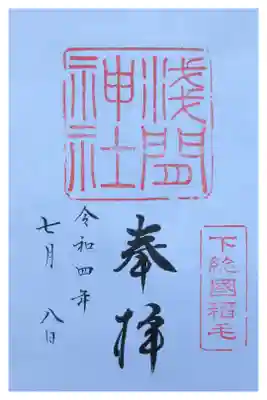 浅間
神社
下総國稲毛
奉拝
令和四年
七月 八日